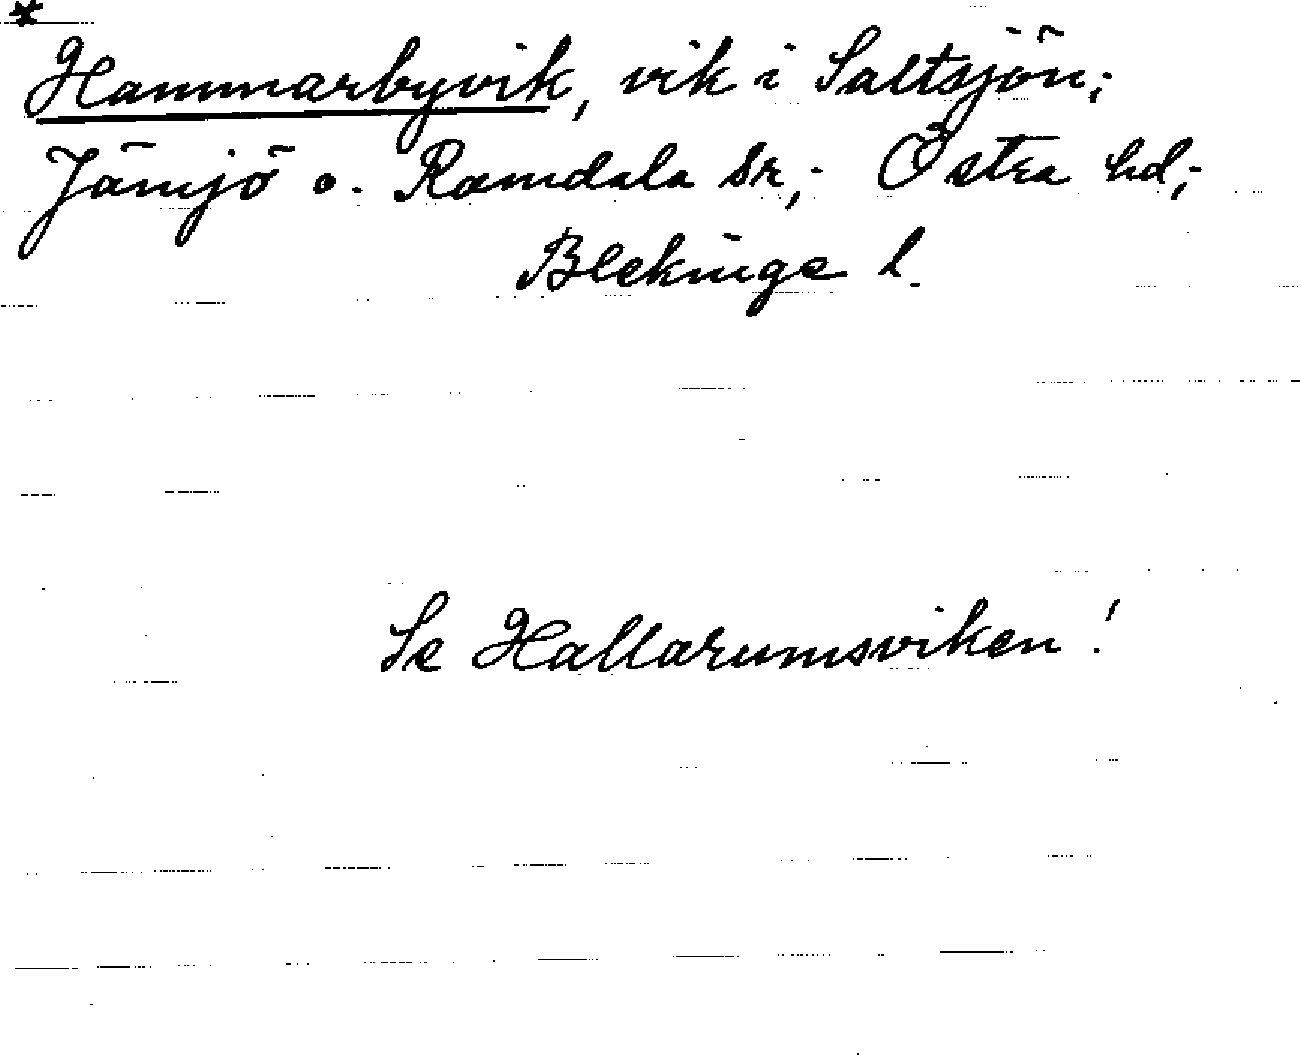 *
Hammarbyvik, vik i Saltsjön;
Jämjö o. Ramdala sr,; Östra hd,;
Blekinge l.
Se Hallarumsviken!